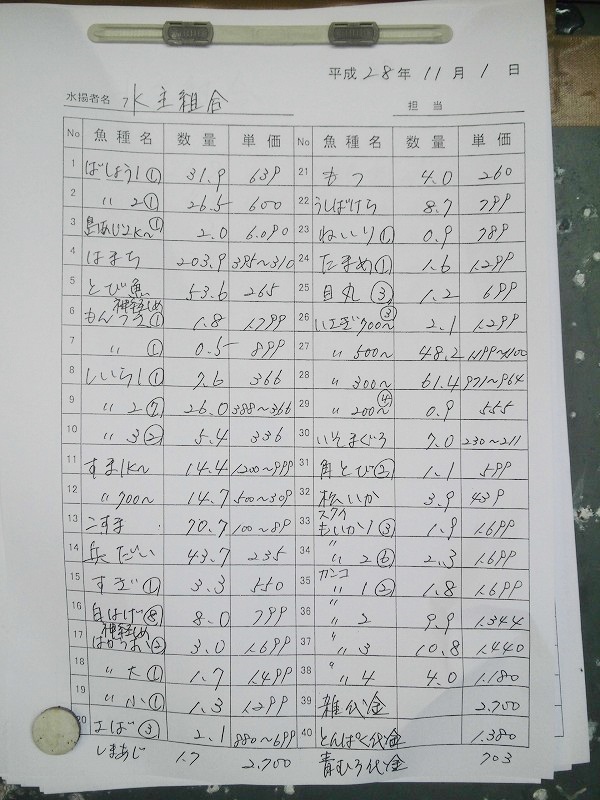 平成 28 年 11 月 1 日
水揚者名 水主組合 担当
No 魚種名 数量 単価
1 ばしょう1① 31.9 639
2 〃 2① 26.5 600
3 島あじ2K〜① 2.0 6.090
4 はまち 203.9 395〜310
5 とび魚 53.6 265
6 もんつき① 神経じめ 1.8 1.799
7 〃 ① 0.5 899
8 しいら1① 7.6 366
9 〃 2⑦ 26.0 388〜366
10 〃 3② 5.4 336
11 すま1K〜 14.4 1200〜999
12 〃 700〜 14.7 500〜309
13 こすま 70.7 100〜89
14 兵だい 43.7 235
15 すぎ① 3.3 550
16 白はげ⑧ 8.0 799
17 神経じめ 3.0 1.699
18 〃 大① 1.7 1.499
19 〃 小① 1.3 1.299
20 エば③ 2.1 880〜699
しまあじ 1.7 2.700
No 魚種名 数量 単価
21 もつ 4.0 260
22 うしばげら 8.7 799
23 ねいり① 0.9 789
24 たまめ① 1.6 1.299
25 目丸③ 1.2 699
26 いエぎ700〜③ 2.1 1.299
27 〃 500〜 48.2 1199〜1100
28 〃 300〜 61.4 971〜964
29 〃 200〜④ 0.9 555
30 いそまぐろ 7.0 230〜211
31 角とび② 1.1 599
32 松いか 3.9 439
33 スケイ もいか1③ 1.9 1.699
34 〃 2⑥ 2.3 1.699
35 カンコ 〃 1② 1.8 1.699
36 〃 〃 2 9.9 1.344
37 〃 〃 3 10.8 1.440
38 〃 〃 4 4.0 1.180
39 雑代金 2.700
40 とんぱく代金 1.380
青むろ代金 703